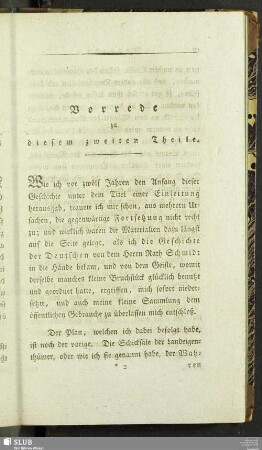 Vorrede
zu
diesem zweiten Theile.
Wie ich vor zwölf Jahren den Anfang dieser
Geschichte unter dem Titel einer Einleitung
herausgab, trauete ich mir schon, aus mehrern Ur-
sachen, die gegenwärtige Fortsetzung nicht recht
zu; und wirklich waren die Materialien dazu längst
auf die Seite gelegt, als ich die Geschichte
der Deutschen von dem Herrn Rath Schmidt
in die Hände bekam, und von dem Geiste, womit
derselbe manches kleine Bruchstück glücklich benutzt
und geordnet hatte, ergriffen, mich sofort nieder-
setzte, und auch meine kleine Sammlung dem
öffentlichen Gebrauche zu überlassen mich entschloß.
Der Plan, welchen ich dabei befolgt habe,
ist noch der vorige. Die Schicksale der Landeigen-
thümer, oder wie ich sie genannt habe, der Wah-
* 2 ren
SLUB
Wir führen Wissen.